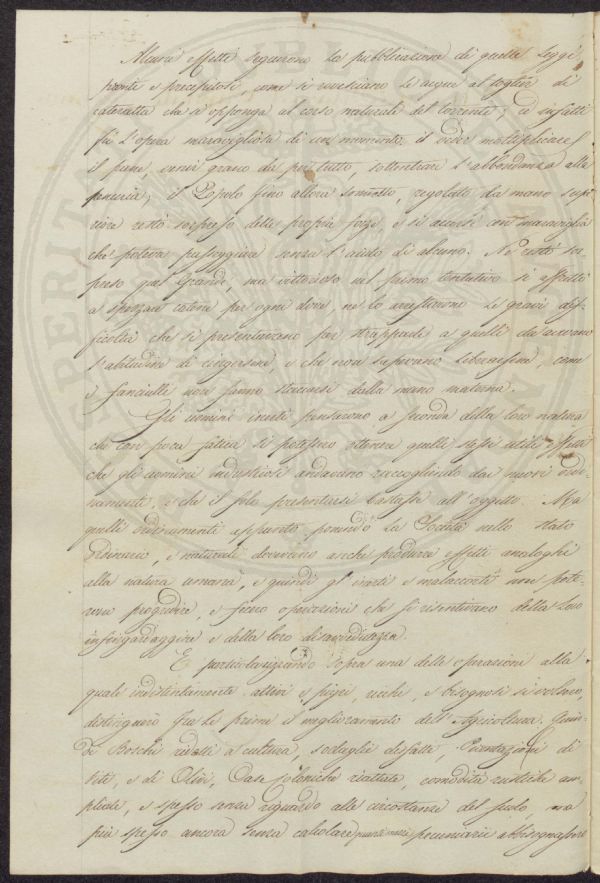 Alcuni effetti seguirono la pubblicazione di quelle Leggi
pronte e precipitose, come si rovesciano le acque al togliere di
cateratta che si opponga al corso naturale del torrente; ed infatti
fu l'opera maravigliosa di un momento, il veder moltiplicare
il pane, venir grano da per tutto, sottentrare l'abbondanza alla
penuria; il Popolo fino allora sommesso, regolato da mano supe-
riore restò sorpreso delle proprie forze, e si accorse con maraviglia
che poteva passeggiare senza l'aiuto di alcuno. Nè restò so-
speso quel Grande, ma vittorioso nel primo tentativo si affrettò
a spezzar catene per ogni dove, nè lo arrestarono le gravi dif-
ficoltà che si presentavano per strapparle a quelli che avevano
l'abitudine di cingersene, e che non sapevano liberarsene, come
i fanciulli non sanno staccarsi dalla mano materna.
Gli uomini inerti pensarono a seconda della loro natura
che con poca fatica si potessero ottenere quelli stessi utili effetti
che gli uomini industriosi andavano raccogliendo dai nuovi ordi-
namenti, e che il solo presentarsi bastasse all'oggetto. Ma
quelli ordinamenti appunto ponendo la Società nello stato
ordinario, e naturale dovevano anche produrre effetti analoghi
alla natura umana, e quindi gl'inerti e malaccorti non pote-
rono progredire, e fecero operazioni che si risentivano della loro
infingardaggine e della loro disavvedutezza.
E particolarizzando sopra una delle operazioni alla
quale indistintamente attivi e pigri, ricchi, e bisognosi si volsero,
distinguerò fra le prime il miglioramento dell'Agricoltura. Quin-
di Boschi ridotti a cultura, sodaglie disfatte, Piantazioni di
Viti, e di Olivi, Case Coloniche riattate, comodità rustiche am-
pliate, e spesso senza riguardo alle circostanze del suolo, ma
più spesso ancora senza calcolare quanti mezzi pecuniarii abbisognassero